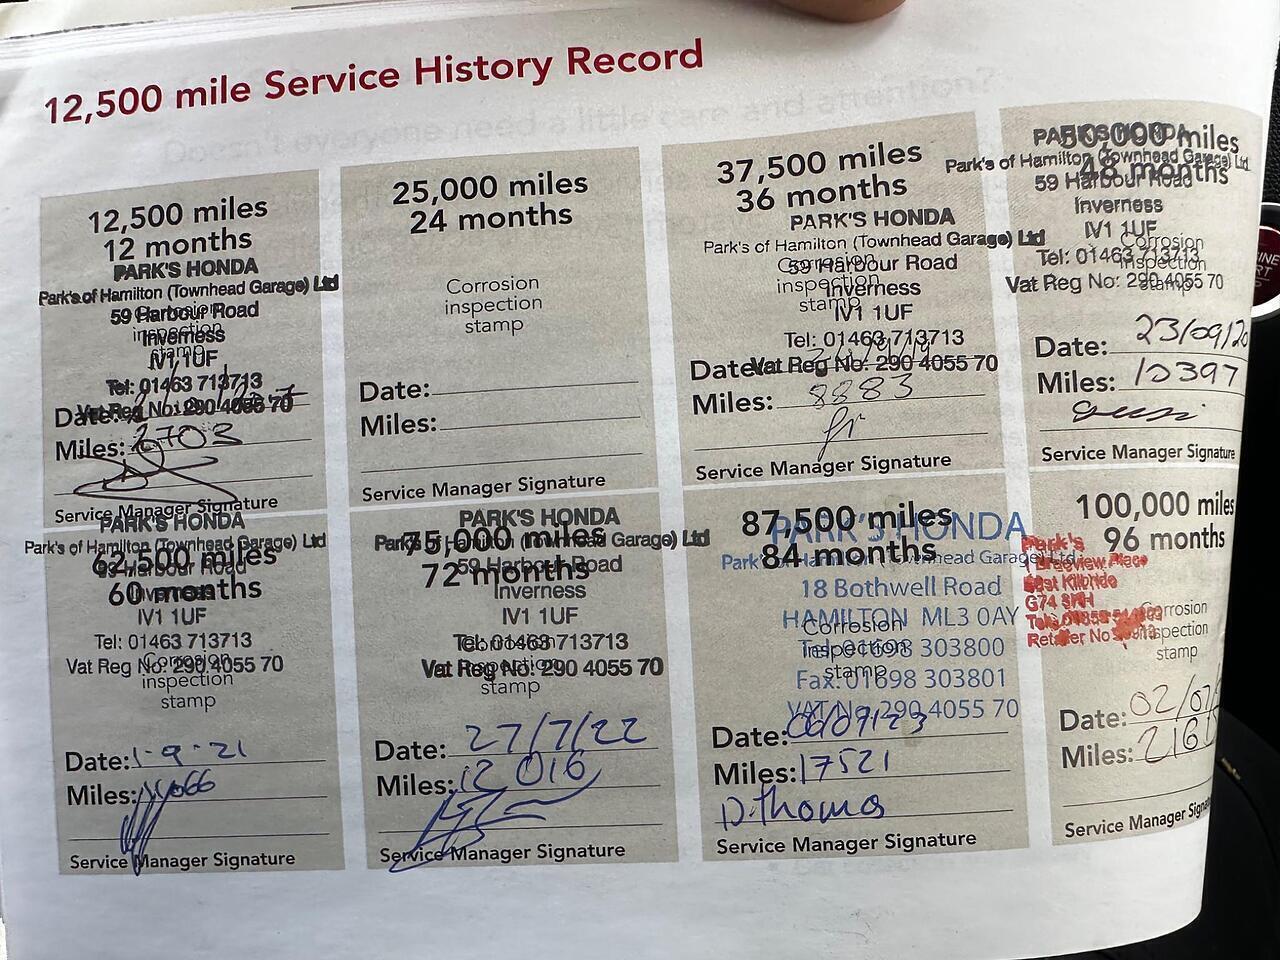 12,500 mile Service History Record
12,500 miles
12 months
PARK'S HONDA
Park's of Hamilton (Townhead Garage) Ltd
59 Harbour Road
Inverness
IV1 1UF
Tel: 01463 713713
Vat Reg No: 290 4055 70
Corrosion
inspection
stamp
Date:
Miles: 2703
Service Manager Signature
25,000 miles
24 months
Corrosion
inspection
stamp
Date:
Miles:
Service Manager Signature
37,500 miles
36 months
PARK'S HONDA
Park's of Hamilton (Townhead Garage) Ltd
59 Harbour Road
Inverness
IV1 1UF
Tel: 01463 713713
Vat Reg No: 290 4055 70
Corrosion
inspection
stamp
Date:
Miles: 8883
Service Manager Signature
50,000 miles
48 months
PARK'S HONDA
Park's of Hamilton (Townhead Garage) Ltd
59 Harbour Road
Inverness
IV1 1UF
Tel: 01463 713713
Vat Reg No: 290 4055 70
Corrosion
inspection
stamp
Date: 23/09/20
Miles: 10397
Service Manager Signature
62,500 miles
60 months
PARK'S HONDA
Park's of Hamilton (Townhead Garage) Ltd
59 Harbour Road
Inverness
IV1 1UF
Tel: 01463 713713
Vat Reg No: 290 4055 70
Corrosion
inspection
stamp
Date: 1-9-21
Miles:
Service Manager Signature
75,000 miles
72 months
PARK'S HONDA
Park's of Hamilton (Townhead Garage) Ltd
59 Harbour Road
Inverness
IV1 1UF
Tel: 01463 713713
Vat Reg No: 290 4055 70
Corrosion
inspection
stamp
Date: 27/7/22
Miles: 12 016
Service Manager Signature
87,500 miles
84 months
PARK'S HONDA
Park's of Hamilton (Townhead Garage) Ltd
18 Bothwell Road
HAMILTON ML3 0AY
Tel: 01698 303800
Fax: 01698 303801
VAT No. 290 4055 70
Corrosion
inspection
stamp
Date:
Miles: 17521
D. Thomas
Service Manager Signature
100,000 miles
96 months
Park's
Place
East Kilbride
G74
Retailer No
Corrosion
inspection
stamp
Date: 02/07/
Miles:
Service Manager Signature